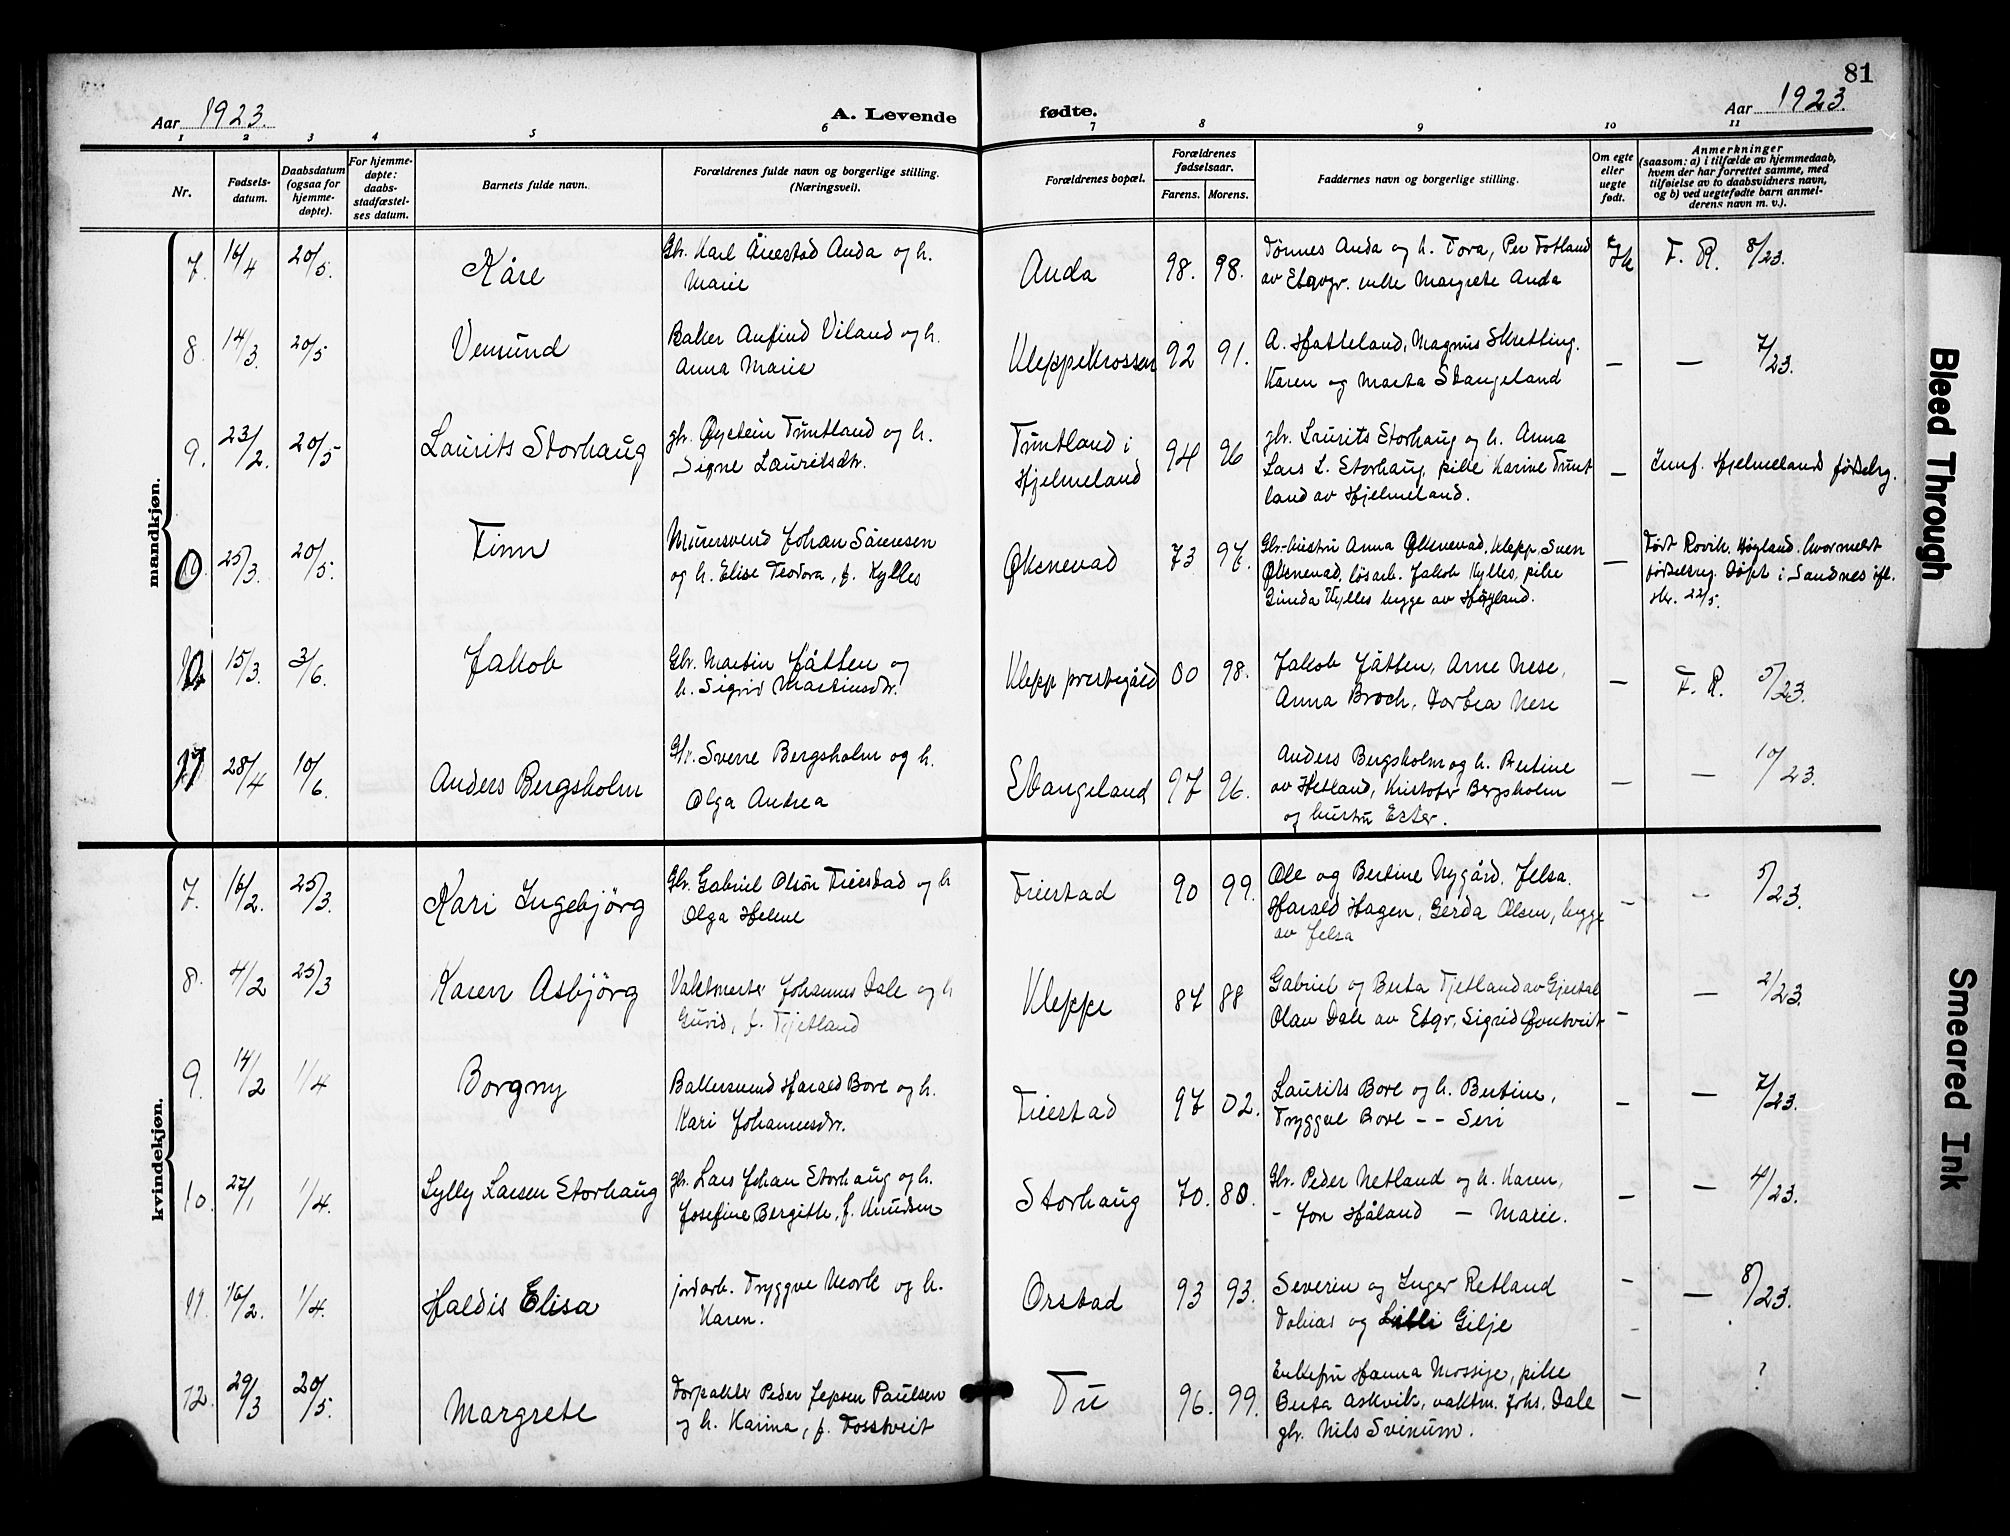 81
Aar 1923. A. Levende fødte. Aar 1923.
1 2 3 4 5 6 7 8 9 10 11
Nr.
Fødsels-
datum.
Daabsdatum
(ogsaa for
hjemme-
døpte).
For hjemme-
døpte:
daabs-
stadfæstel-
ses datum.
Barnets fulde navn.
Forældrenes fulde navn og borgerlige stilling.
(Næringsvei).
Forældrenes bopæl.
Forældrenes
fødselsaar.
Farens. Morens.
Faddernes navn og borgerlige stilling.
Om egte
eller
uegte
født.
Anmerkninger
(saasom: a) i tilfælde av hjemmedaab,
hvem der har forrettet samme, med
tilføielse av to daabsvidners navn,
og b) ved uegtefødte barn anmel-
derens navn m. v.).
mandkjøn.
7. 16/4 20/5. Kåre
Gbr. Karl Årrestad Anda og h.
Marie
Anda 98. 98.
Tønnes Anda og h. Tora, Per Fotland
av Etnegr. enke Margrete Anda
F. R. 8/23.
8. 14/3. 20/5 Vemund
Baker Anfind Viland og h.
Anna Marie
Kleppekrossen 92 91.
A. Hatteland, Magnus Skretting.
Karen og Marta Stangeland
— — 7/23.
9. 23/2. 20/5 Laurits Storhaug
gbr. Øystein Tuntland og h.
Signe Lauritsdtr.
Tuntland i
Hjelmeland
94 96
gbr. Laurits Storhaug og h. Anna
Lars L. Storhaug, pike Karine Tunt
land av Hjelmeland.
— Jumf. Hjelmeland fødselrg.
10. 25/3. 20/5. Finn
Murersvend Johan Sørensen
og h. Elise Teodora, f. Kylles
Øksnevad 73 97.
Gbr.-hustru Anna Øksnevad, Klepp. Sven
Øksnevad, løsarb. Jakob Kylles, pike
Gunda Kylles begge av Høyland.
—
Født Rovik, Høyland, hvor meldt
fødselsrg. Døpt i Sandnes ifl.
skr. 22/5.
15/3. 3/6. Jakob
Gbr. Martin Jåtten og
h. Sigrid Martinsdtr.
Klepp prestegård 00 98.
Jakob Jåtten, Arne Nese,
Anna Broch, Torbea Nese
— F. R. 5/23.
28/4 10/6. Anders Bergsholm
Gbr. Sverre Bergsholm og h.
Olga Andrea
Stangeland 97 96.
Anders Bergsholm og h. Bertine
av Hetland, Kristofer Bergsholm
og hustru Ester.
— — 10/23.
kvindekjøn.
7. 16/2. 25/3. Kari Ingebjörg
Gbr. Gabriel Olsøn Tierstad og h
Olga Helene
Tierstad 90 99.
Ole og Bertine Nygård, Jelsa.
Harald Hagen, Gerda Olsen, begge
av Jelsa
— — 5/23.
8. 4/2 25/3 Karen Asbjörg
Vaktmester Johannes Dale og h
Gurid, f. Tjetland
Kleppe 87 88
Gabriel og Berta Tjetland av Gjestal
Olav Dale av Etgr, Sigrid Øvstveit
— — 2/23.
9. 14/2 1/4 Borgny
Bakersvend Harald Bore og h.
Kari Johannesdtr.
Tierstad 97 02.
Laurits Bore og h. Bertine,
Tryggve Bore - - Siri
— — 7/23.
10. 27/1 1/4. Lylly Larsen Storhaug
gbr. Lars Johan Storhaug og h.
Josefine Bergitte, f. Knudsen
Storhaug 70. 80.
Gbr. Peder Netland og h. Karen,
- Jon Håland — Marie.
— — 4/23.
11. 16/2. 1/4. Haldis Elisa
jordarb. Tryggve Mork og h.
Karen.
Orstad 93 93.
Severin og Inger Retland
Tobias og Lilli Gilje
— — 8/23.
12. 29/3 20/5. Margrete
Torpakter Peder Jepsen Paulsen
og h. Karina, f. Tosstveit
Tu 96. 99.
Enkefru Hanna Mossige, pike
Berta Askvik, vaktm. Johs. Dale
gbr. Nils Svinum.
— ?
Bleed Through
Smeared Ink